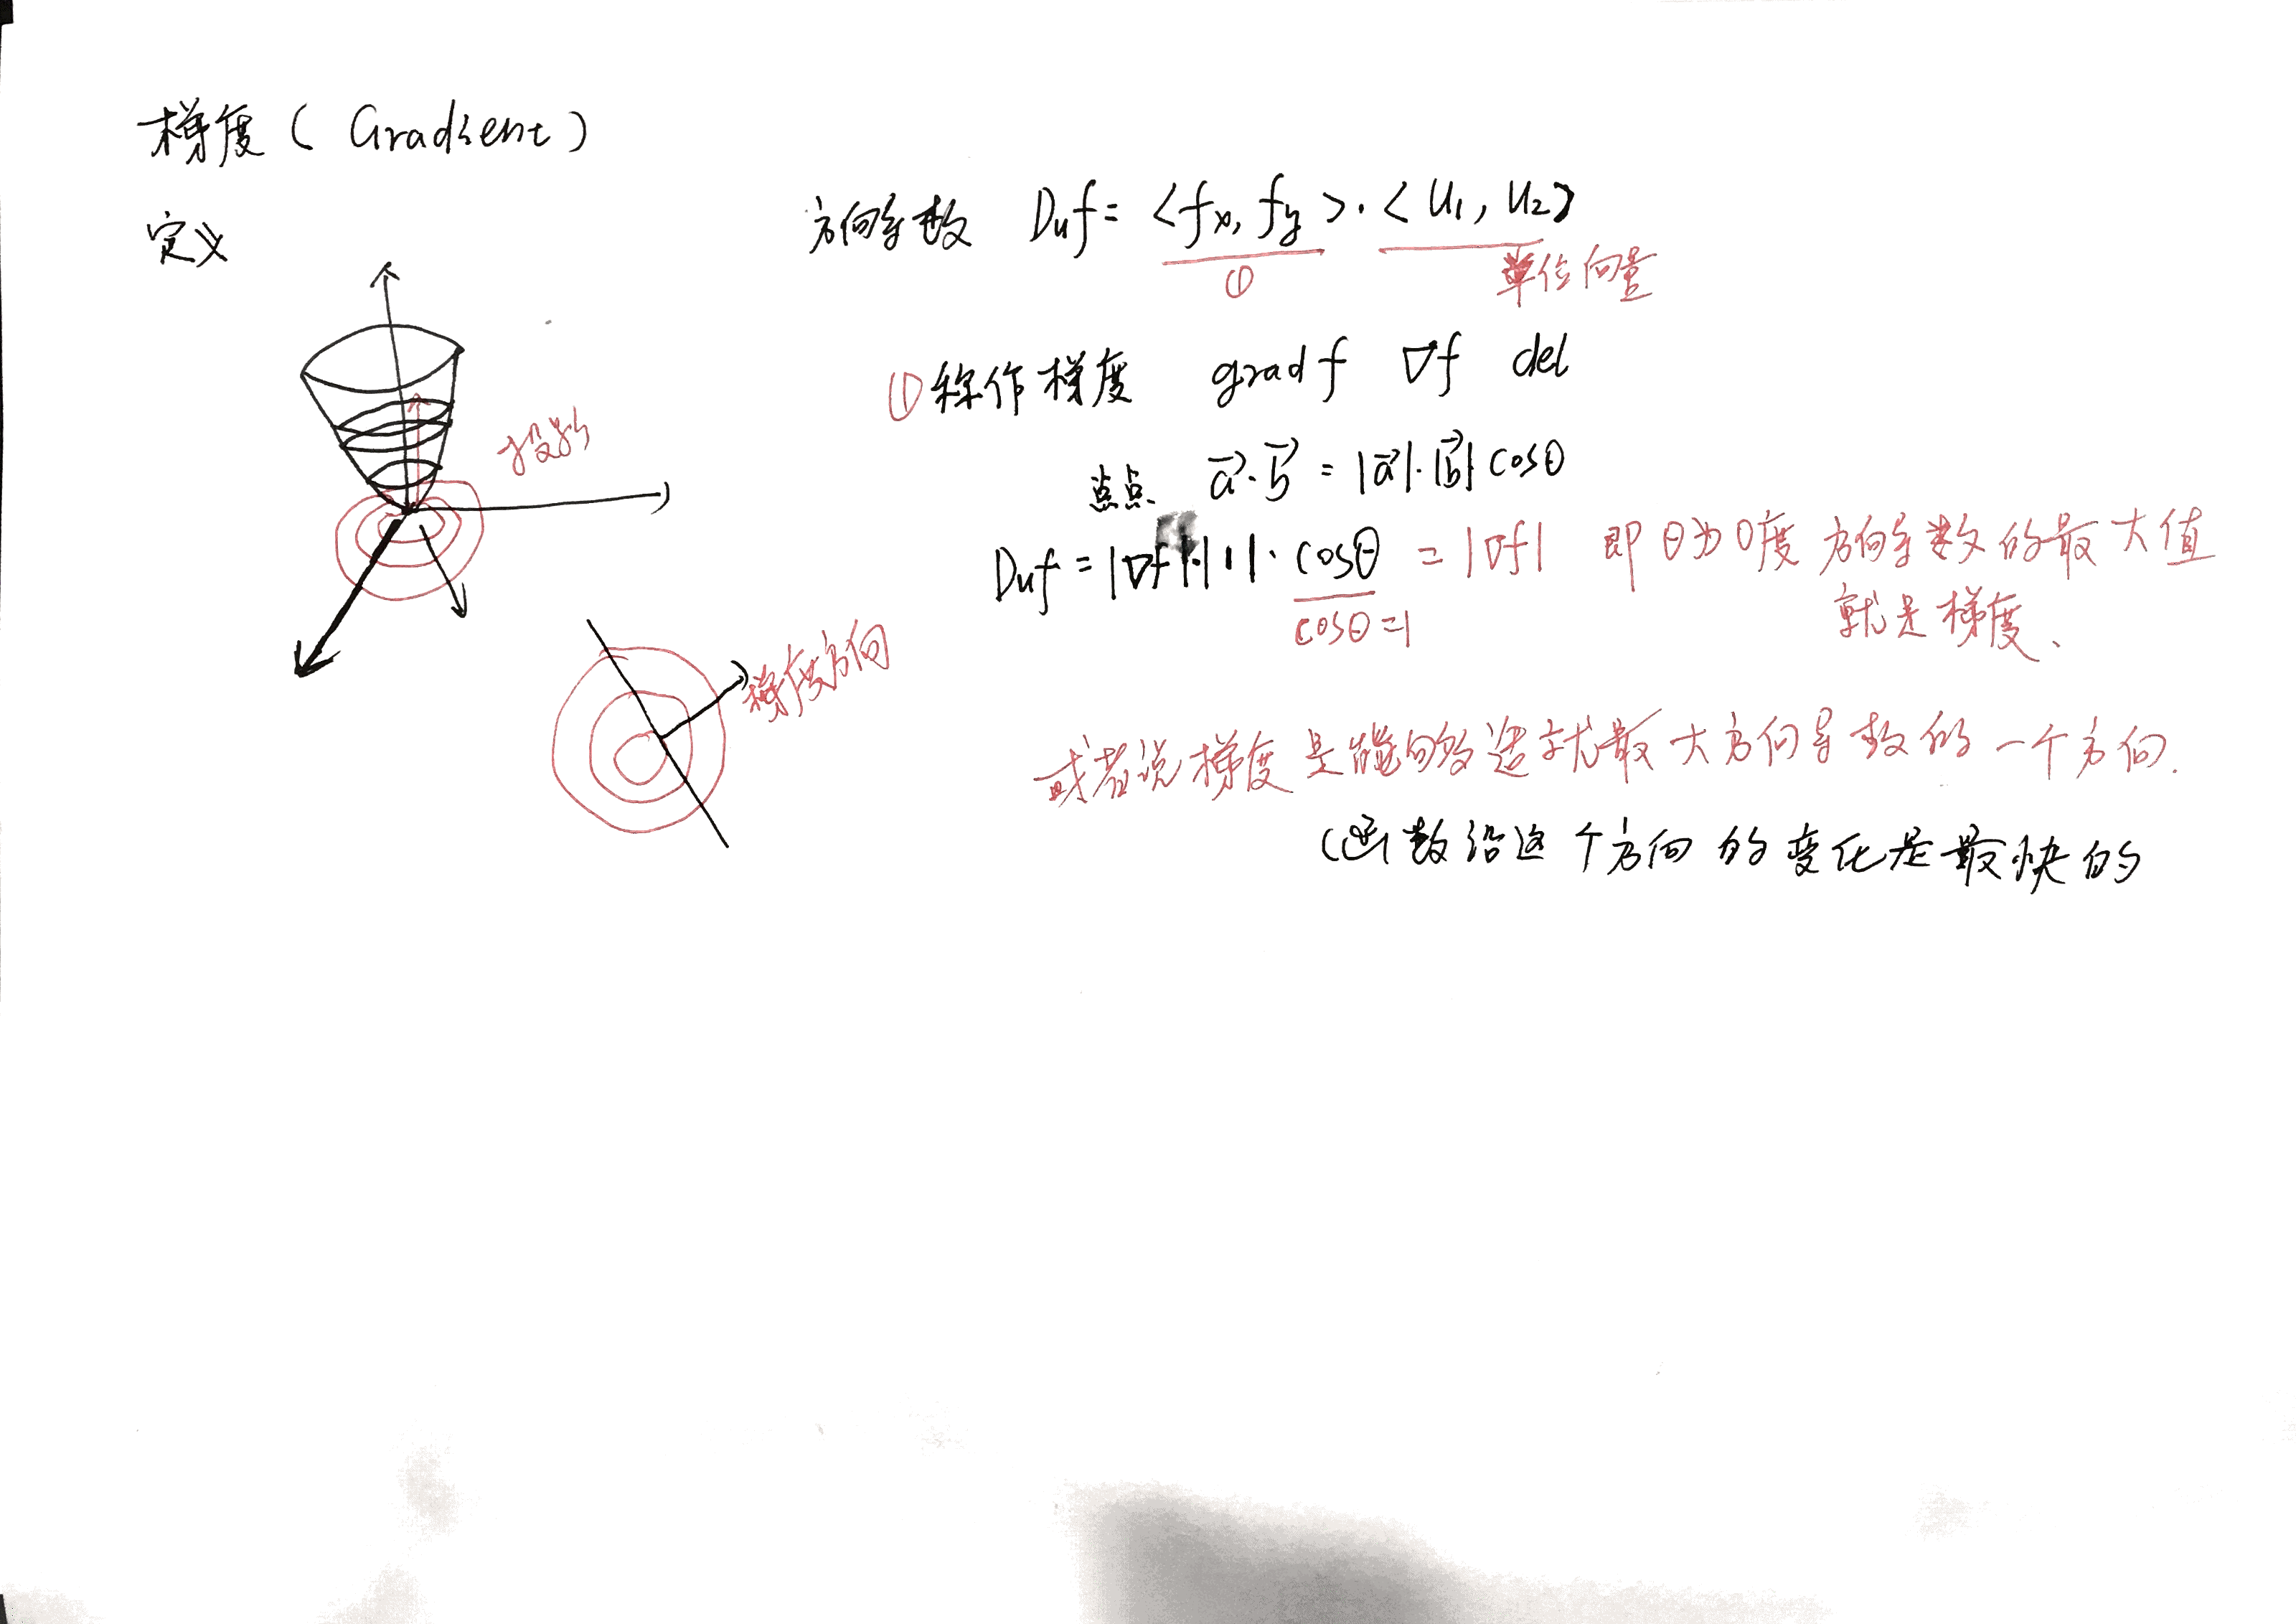 梯度 ( Gradient )
定义
投影
梯度方向
方向导数 Duf = <fx, fy>·<u1, u2>
① 单位向量
①称作梯度 grad f ∇f del
点点 a⃗·b⃗ = |a⃗|·|b⃗| cosθ
Duf = |∇f|·|1|·cosθ = |∇f| 即θ为0度 方向导数的最大值
cosθ=1 就是梯度、
或者说梯度是能够造就最大方向导数的一个方向.
(函数沿这个方向的变化是最快的